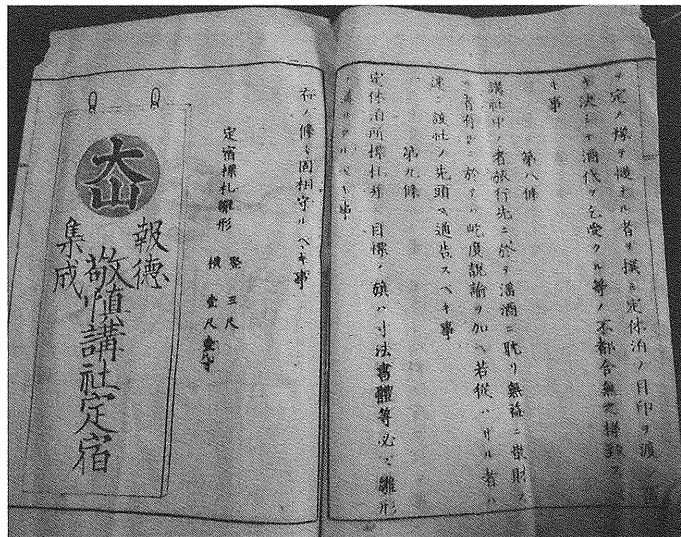 ヲ定メ標ヲ揚オル者ヲ撰ミ定休泊ノ目印ヲ渡シ
決シテ酒代ヲ乞受クル等ノ不都合無之様致ス
キ事
第八條
講社中ノ者旅行先ニ於テ濫酒ニ耽リ無益ニ散財スル
者有ルニ於テハ屹度説諭ヲ加ヘ若従ハサル者ハ
速ニ該社ノ先頭ヘ通告スベキ事
第九條
定休泊所標札并ニ目標ノ旗ハ寸法書體等必ス雛形
ノ通タルベキ事
右ノ條々固相守ルベキ事
定宿標札雛形
竪三尺
横壹尺壹寸
大山
報徳
敬愼講社定宿
集成